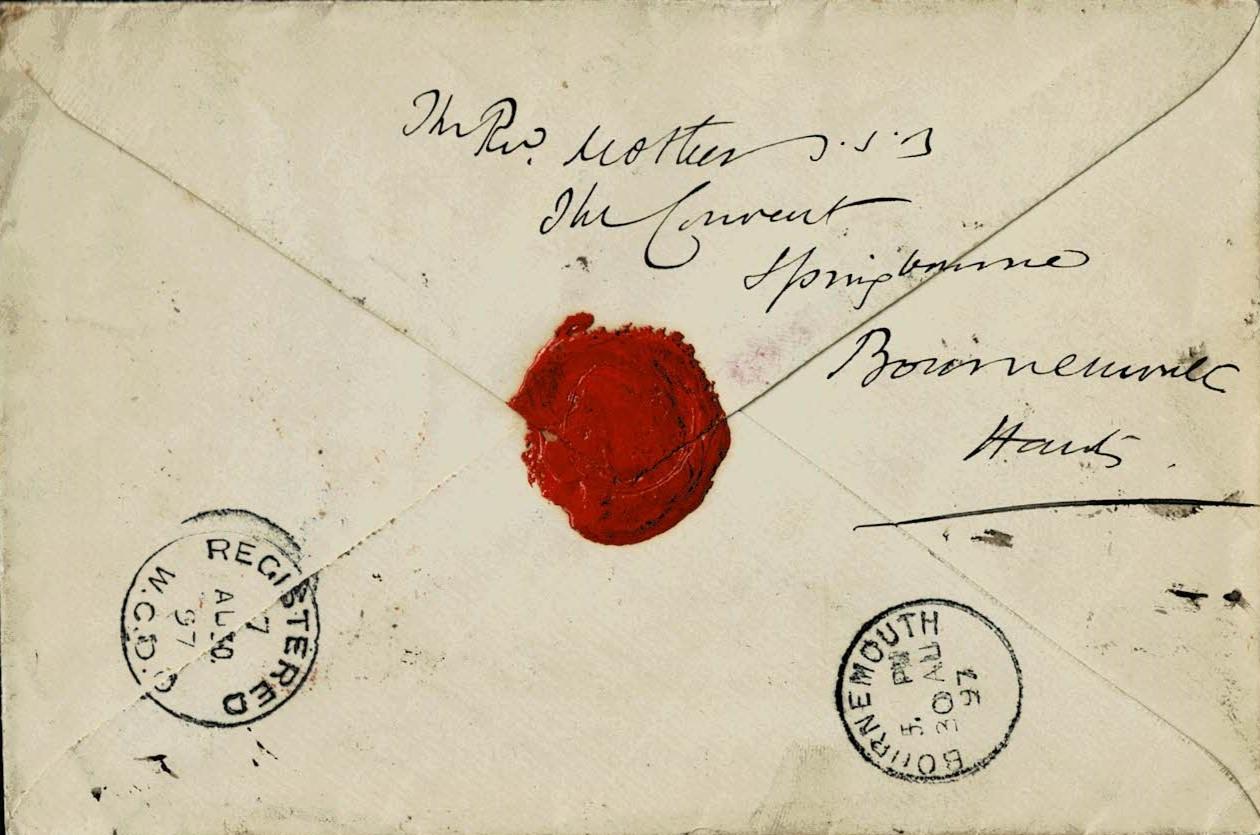 The Rev. Mother S.S.B
The Convent
Springbourne
Bournemouth
Hants.
REGISTERED
7
AU 30
97
W.C.D.O
BOURNEMOUTH
5. PM
30 AU
97